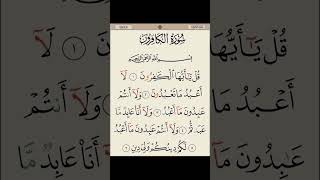 سُورَةُ الكَافِرُونَ
بِسْمِ اللَّهِ الرَّحْمَٰنِ الرَّحِيمِ
قُلْ يَٰٓأَيُّهَا ٱلْكَٰفِرُونَ ١ لَآ
أَعْبُدُ مَا تَعْبُدُونَ ٢ وَلَآ أَنتُمْ
عَٰبِدُونَ مَآ أَعْبُدُ ٣ وَلَآ أَنَا۠ عَابِدٌ مَّا
عَبَدتُّمْ ٤ وَلَآ أَنتُمْ عَٰبِدُونَ مَآ أَعْبُدُ
٥ لَكُمْ دِينُكُمْ وَلِيَ دِينِ ٦